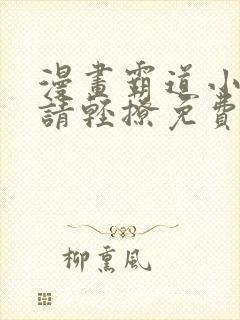 漫畫霸道小
請輕撩免費
柳熏風